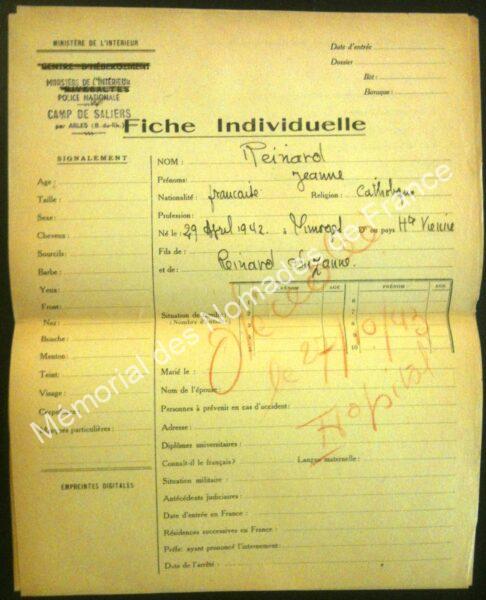 MINISTÈRE DE L'INTÉRIEUR
CENTRE D'HÉBERGEMENT
MINISTÈRE DE L'INTÉRIEUR
RIVESALTES
POLICE NATIONALE
CAMP DE SALIERS
par ARLES (B.-du-Rh.)
Date d'entrée
Dossier
Ilot :
Baraque :
Fiche Individuelle
SIGNALEMENT
Age :
Taille :
Sexe :
Cheveux :
Sourcils :
Barbe :
Yeux :
Front :
Nez :
Bouche :
Menton :
Teint :
Visage :
Corpulence :
Marques particulières :
EMPREINTES DIGITALES
NOM : Reinard
Prénoms : Jeanne
Nationalité : française Religion : Catholique
Profession :
Né le : 29 April 1942 à Limoges ou pays Hte Vienne
Fils de :
et de : Reinard Suzanne.
PRÉNOM AGE PRÉNOM : AGE
6
7
8
9
10
Situation de famille
(Nombre d'enfants)
Décédée
le 27/9/43
Hopital
Marié le :
Nom de l'épouse :
Personnes à prévenir en cas d'accident :
Adresse :
Diplômes universitaires :
Connaît-il le français ? Langue maternelle :
Situation militaire :
Antécédents judiciaires :
Date d'entrée en France :
Résidences successives en France :
Préfet ayant prononcé l'internement :
Date de l'arrêté :
Mémorial des Nomades de France